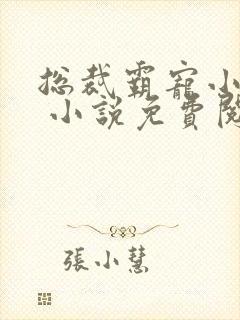 總裁霸寵小
小說免費閱
張小慧